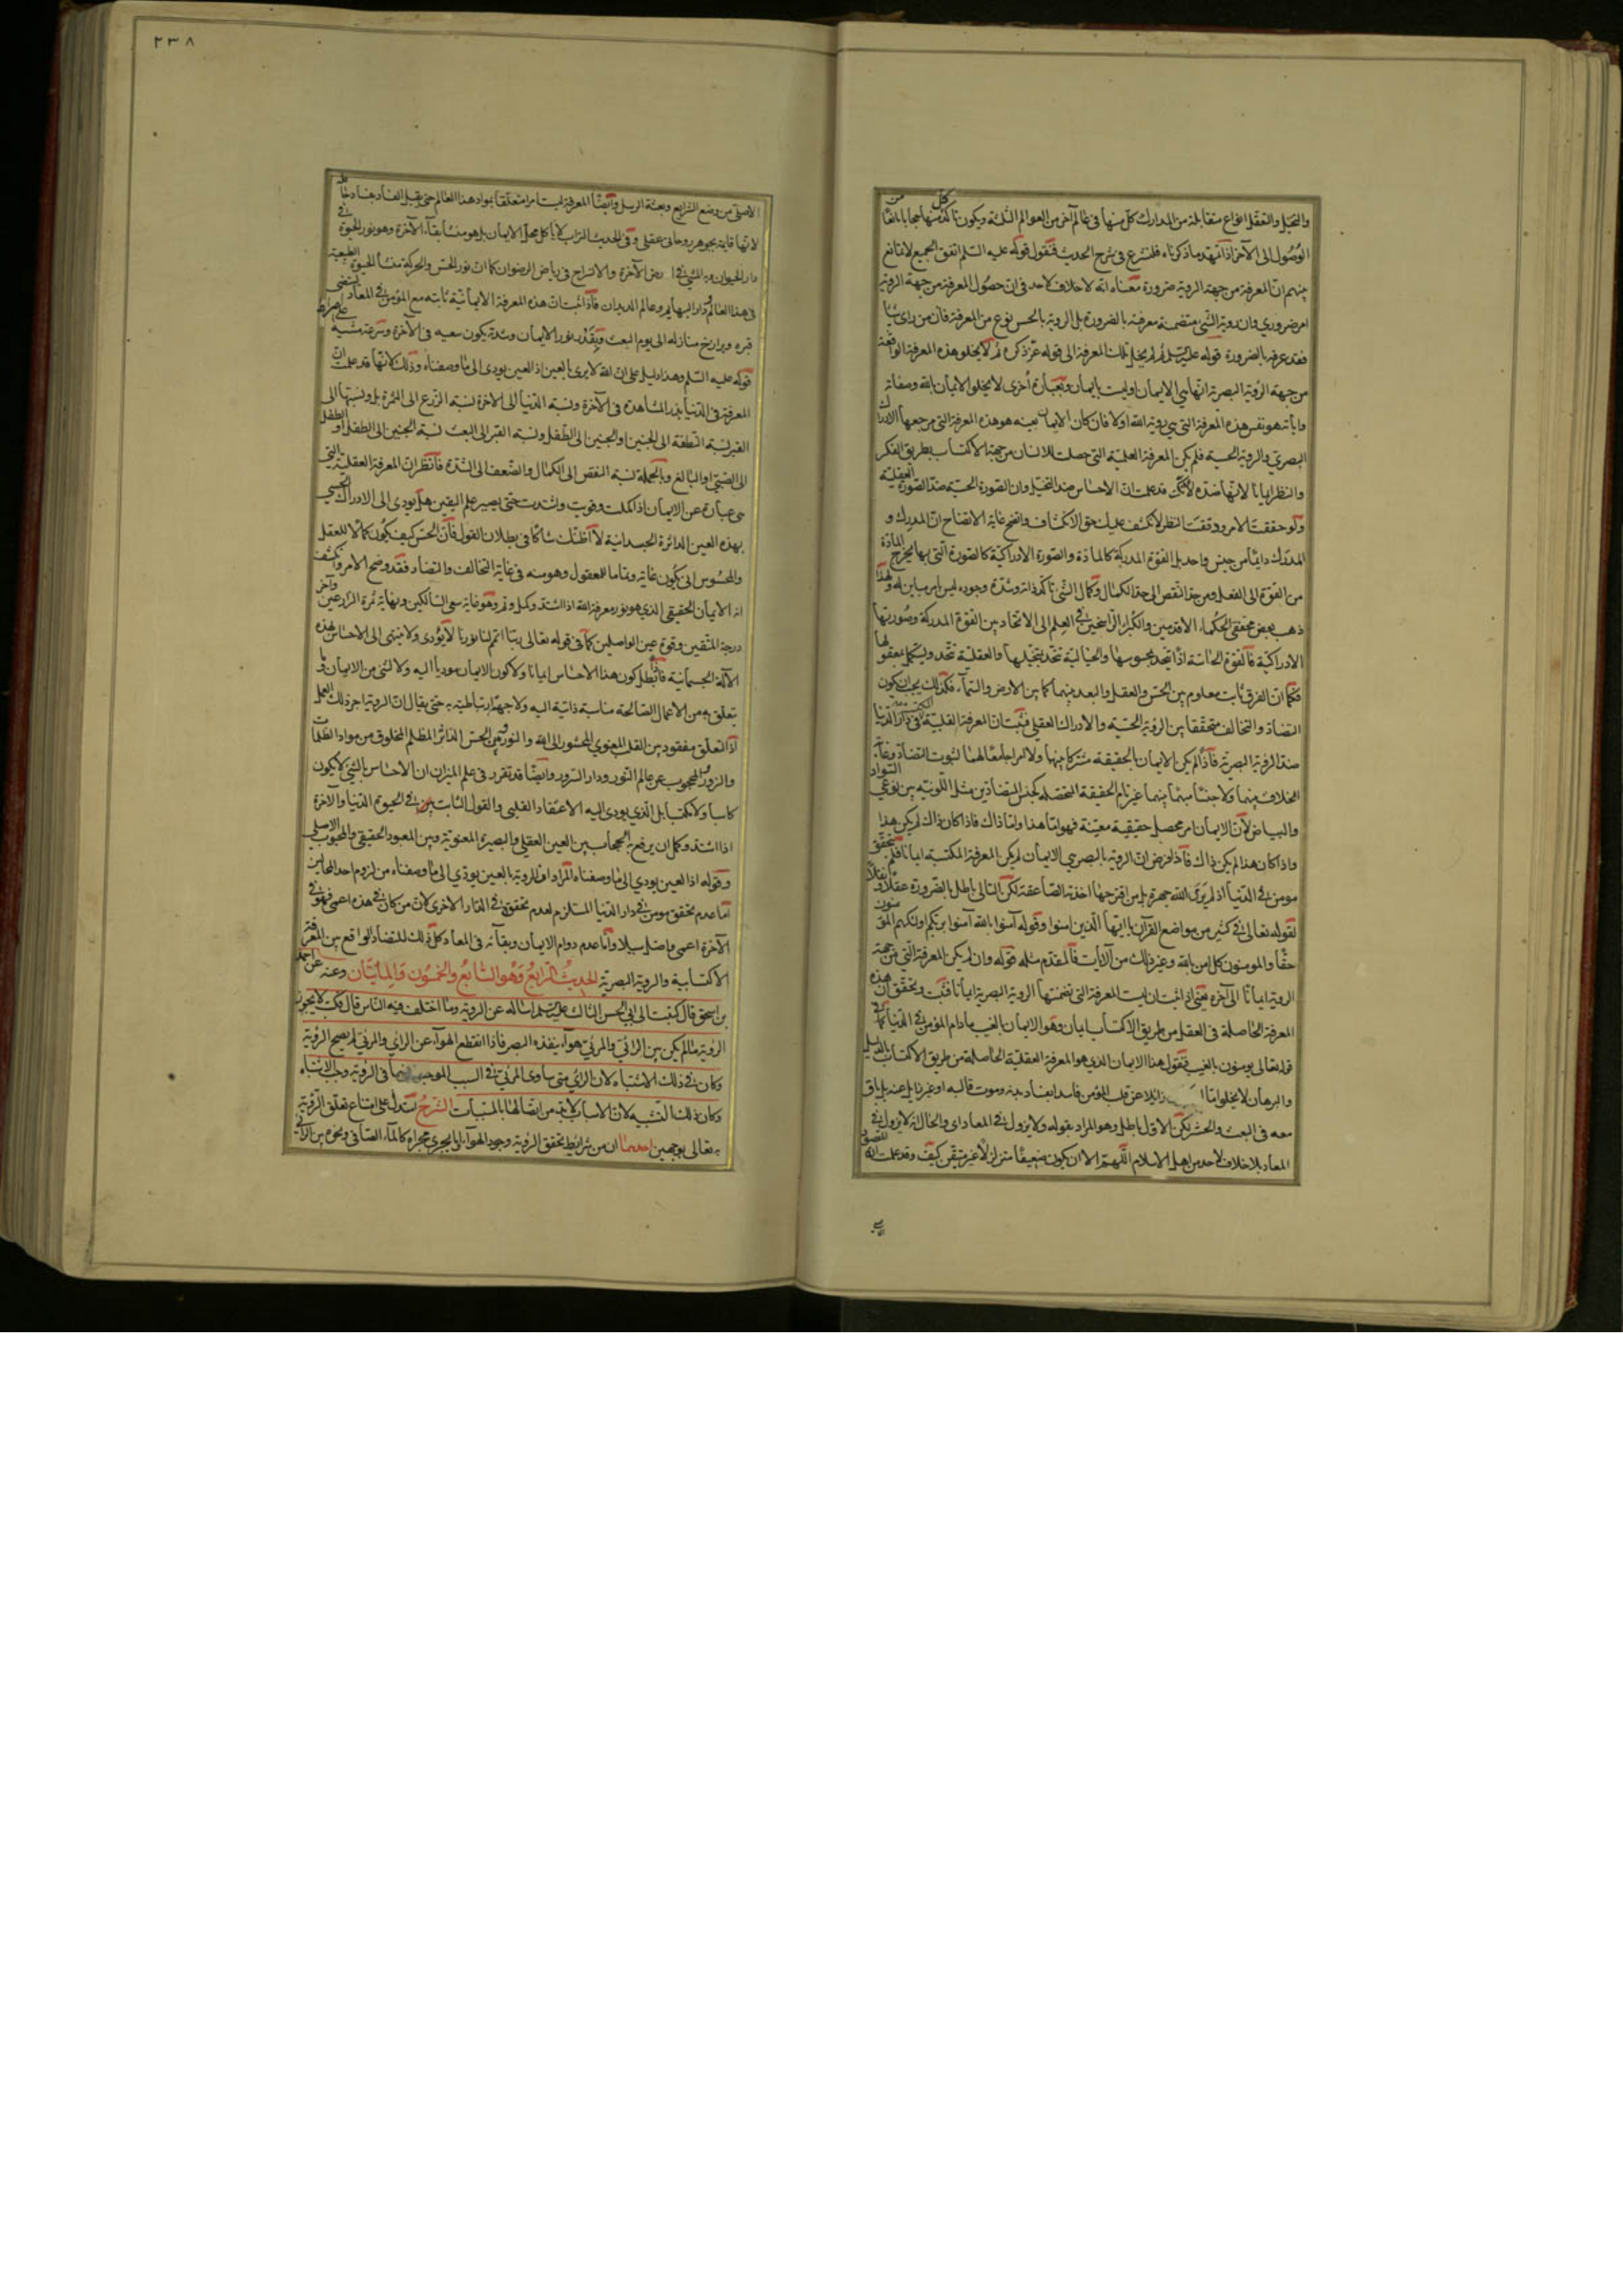 والتخيل والتعقل انواع متقابلة من المدارك كل منها في عالم آخر من العوالم الثلثة ويكون تاكد كل منها حجابا مانعا من
الوصول الى الآخر اذا تمهد ما ذكرناه فلنشرع في شرح الحديث فنقول قوله عليه السلم اتفق الجميع لا تمانع
بينهم ان المعرفة من جهة الروية ضرورة معناه انه لا خلاف لاحد في ان حصول المعرفة من جهة الروية
امر ضروري وان روية الشي متضمنة معرفته بالضرورة بل الروية بالحس نوع من المعرفة فان من راى شيئا
فقد عرفه بالضرورة قوله عليه السلم ثم لم يخل تلك المعرفة الى قوله عز ذكره ثم لا يخلو هذه المعرفة الواقعة
من جهة الرؤية البصرية انها هي الايمان او ليست بايمان وبعبارة أخرى لا يخلو الايمان بالله وصفاته
واياته هو نفس هذه المعرفة التي هي روية الله او لا فان كان الايمان بعينه هو هذه المعرفة التي مرجعها الادراك
البصري والروية الحسية فلم يكن المعرفة العلمية التي حصلت للانسان من جهة الاكتساب بطريق الفكر
والنظر ايمانا لانها ضده لانك قد علمت ان الاحساس ضد التخيل وان الصورة الحسية ضد الصورة العقلية
ولو حققت الامر ودققت النظر لانكشف عليك حق الانكشاف واتضح غاية الاتضاح ان المدرك و
المدرك دائما من جنس واحد بل القوة المدركة كالمادة والصورة الادراكية كالصورة التي بها يخرج المادة
من القوة الى الفعل ومن حد النقص الى حد الكمال وكمال الشي تاكد ذاته وشدة وجوده ليس امر مباين له ولهذا
ذهب بعض محققي الحكماء الاقدمين والكبراء الراسخين في العلم الى الاتحاد بين القوة المدركة وصورتها
الادراكية فالقوة الحاسة اذا تتحد بمحسوسها والخيالية تتحد بتخيلها والعقلية تتحد ويستكمل بمعقولها
فكما ان الفرق ثابت معلوم بين الحس والعقل والبعد بينهما كما بين الارض والسماء فكذلك يجب ان يكون
التضاد والتخالف متحققا بين الرؤية الحسية والادراك العقلي فثبت ان المعرفة القلبية في دار الدنيا
ضد الروية البصرية فاذا لم يكن الايمان بالحقيقة مشتركا بينها ولا امرا جامعا لهما لثبوت التضاد وغاية
الخلاف بينهما ولا جنسا مبهما بينهما غير تام الحقيقة المتحصله كجنس المتضادين مثل اللونية بين نوعي السواد
والبياض لان الايمان امر محصل حقيقية معينة فهو اما هذا واما ذاك فاذا كان ذاك لم يكن هذا
واذا كان هذا لم يكن ذاك فاذا فرض ان الروية بالبصر هي الايمان لم يكن المعرفة المكتسبة ايمانا فلم يتحقق
مومن في الدنيا اذ لم ير الله جهرة بل من اقترحها اخذته الصاعقة لكن التالي باطل بالضرورة عقلا ونقلا
لقوله تعالى في كثير من مواضع القرآن يا ايها الذين امنوا وقوله آمنوا بالله آمنوا بربكم اولئك هم المؤمنون
حقا والمومنون كل امن بالله وغير ذلك من الآيات فالمقدم مثله قوله وان لم يكن المعرفة التي من جهة
الروية ايمانا الى آخره يعني اذا ثبت ان ليست المعرفة التي تضمنتها الروية البصرية ايمانا فثبت وتحقق ان هذه
المعرفة الحاصلة في العقل من طريق الاكتساب ايمان وهو الايمان بالغيب ما دام المؤمن في الدنيا كما في
قوله تعالى يومنون بالغيب فنقول هذا الايمان الذي هو المعرفة العقلية الحاصلة من طريق الاكتساب بالدليل
والبرهان لا يخلو اما زائلا عن قلب المؤمن فاسدا بفساد بدنه وموت قالبه او غير زايل عنه بل باق
معه في البعث والحشر لكن الاول باطل وهو المراد بقوله ولا يزول في المعاد اي والحال انه لا يزول في
المعاد بلا خلاف لاحد من اهل الاسلام اللهم الا ان يكون ضعيفا متزلزلا غير متيقن كيف وقد علمت انه المقصود
٢٣٨
الاصلي من وضع الشرايع وبعثة الرسل وايضا المعرفة ليست امرا متعلقا بمواد هذا العالم حتى يقبل الفساد بفسادها
لانها قائمة بجوهر روحاني عقلي وفي الحديث التراب لا ياكل محل الايمان بل هو منشأ بقاء الآخرة وهو نور الحيوة في
دار الحيوان وبه المشي في ارض الآخرة والانشراح في رياض الرضوان كما ان نور الحس والحركة منشأ الحيوة الطبيعية
في هذا العالم ودار البهايم وعالم الديدان فاذا ثبت ان هذه المعرفة الايمانية ثابته مع المؤمن في المعاد
قبره وبرازخ منازله الى يوم البعث وبقدر نور الايمان وشدته يكون سعيه في الآخرة وسرعة مشيه على صراط
قوله عليه السلم وهذا دليل على ان الله لا يرى بالعين اذ العين يودى الى ما وصفناه وذلك لانها قد علمت ان
المعرفة في الدنيا بذر المشاهدة في الآخرة ونسبة الدنيا الى الاخرة نسبة الزرع الى الثمرة بل ونسبتها الى
القبر نسبة النطفة الى الجنين والجنين الى الطفل ونسبة القبر الى البعث نسبة الجنين الى الطفل او الطفل
الى الصبي او البالغ وبالجملة نسبة النقص الى الكمال والضعف الى الشدة فانظر ان المعرفة العقلية التي
هي عبارة عن الايمان اذا كملت وقويت واشتدت حتى يصير علم اليقين هل يودى الى الادراك الحسي
بهذه العين الداثرة الجسدانية لا اظنك شاكا في بطلان القول فان الحس كيف يكون كمالا للعقل
والمحسوس انى يكون غاية وتماما للمعقول وهو منه في غاية التخالف والتضاد فقد وضح الامر وانكشف
انه الايمان الحقيقي الذي هو نور معرفة الله اذا اشتد وكمل وقر وهو غاية سعي السالكين ونهاية ثمرة الزارعين وآخر
درجة المتقين وقوة عين الواصلين كما في قوله تعالى ربنا اتمم لنا نورنا لا يؤدى ولا ينتهى الى الاحساس بهذه
الآلة الجسمانية فابطل كون هذا الاحساس ايمانا ولا كون الايمان موديا اليه ولا لشي من الايمان وما
يتعلق به من الاعمال الصالحة مناسبة ذاتية اليه ولا جهة ارتباطية به حتى يقال ان الروية اجر ذلك العمل
اذ التعلق مفقود بين القلب المعنوي المحشور الى الله والنور وبين الحس الداثر المظلم المخلوق من مواد الظلمات
والزور المحجوب عن عالم النور ودار السرور وايضا قد تقرر في علم الميزان ان الاحساس بالشي لا يكون
كاسبا ولا مكتسبا بل الذي يودى اليه الاعتقاد القلبي والقول الثابت في الحيوة الدنيا والآخرة
اذا اشتد وكمل ان يرفع الحجاب بين العين العقلي والبصيرة المعنوية وبين المعبود الحقيقي والمحبوب الاصلي
وقوله اذا العين يودي الى ما وصفناه المراد ان الروية بالعين يودى الى ما وصفناه من لزوم احد المحالين
اما عدم تحقق مومن في دار الدنيا المستلزم لعدم تحققه في الدار الاخرى لان من كان في هذه اعمى فهو في
الآخرة اعمى واضل سبيلا واما عدم دوام الايمان وبقآئه في المعاد كل ذلك للتضاد الواقع بين المعرفة
الاكتسابية والروية البصرية الحديث الرابع وهو السابع والخمسون والمائتان وعنه عن احمد
بن اسحق قال كتبت الى ابي الحسن الثالث عليه السلم اسأله عن الروية وما اختلف فيه الناس قال فكتب لا يجوز
الرؤية ما لم يكن بين الرائي والمرئي هوآء ينفذه البصر فاذا انقطع الهوآء عن الرائي والمرئي لم يصح الرؤية
وكان في ذلك الاشتباه لان الرائي متى ساوى المرئي في السبب الموجب بينهما في الرؤية وجب الاشتباه
وكان ذلك التشبيه لان الاسباب لا بد من اتصالها بالمسببات الشرح تستدل على امتاع تعلق الرؤية
به تعالى بوجهين احدهما ان من شرايط تحقق الرؤية وجود الهوآء او ما يجري مجراه كالمآء الصافي ونحوه بين الرائي